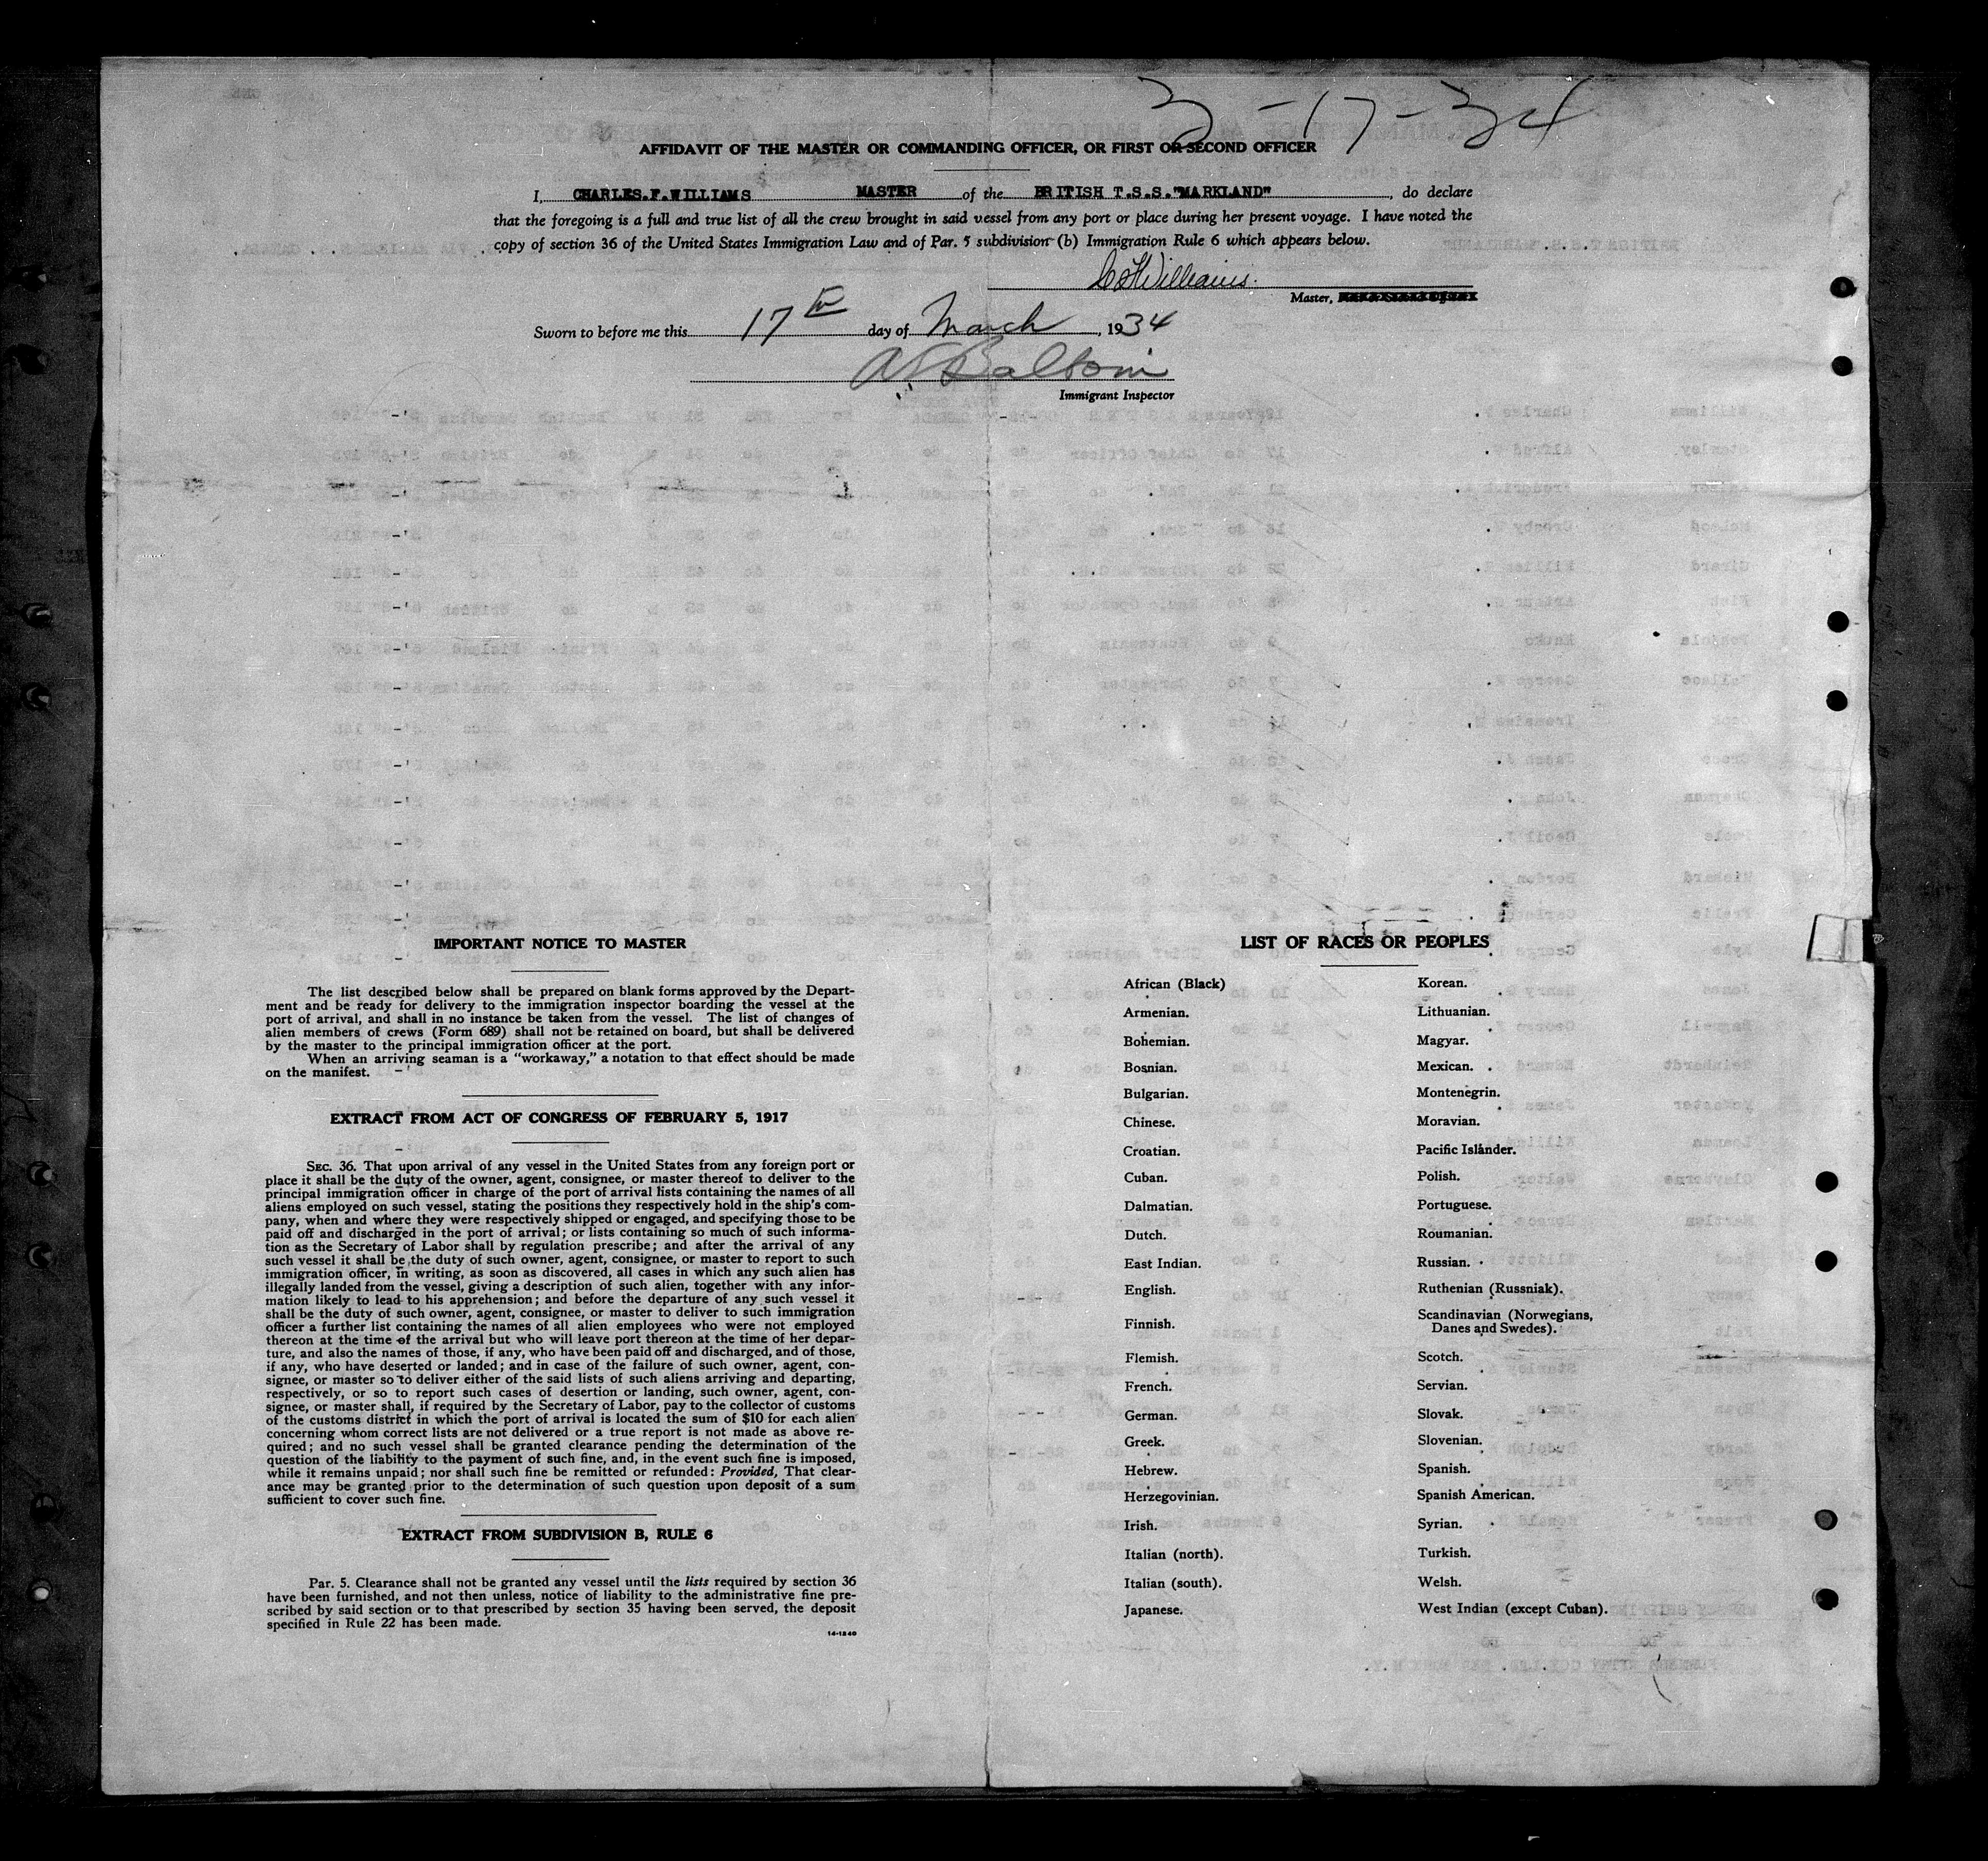 3-17-34
AFFIDAVIT OF THE MASTER OR COMMANDING OFFICER, OR FIRST OR SECOND OFFICER
I, CHARLES.F.WILLIAMS MASTER of the BRITISH T.S.S."MARKLAND", do declare
that the foregoing is a full and true list of all the crew brought in said vessel from any port or place during her present voyage. I have noted the
copy of section 36 of the United States Immigration Law and of Par. 5 subdivision (b) Immigration Rule 6 which appears below.
C F Williams.
Master,
Sworn to before me this 17th day of March, 1934
Immigrant Inspector
IMPORTANT NOTICE TO MASTER
The list described below shall be prepared on blank forms approved by the Depart-
ment and be ready for delivery to the immigration inspector boarding the vessel at the
port of arrival, and shall in no instance be taken from the vessel. The list of changes of
alien members of crews (Form 689) shall not be retained on board, but shall be delivered
by the master to the principal immigration officer at the port.
When an arriving seaman is a "workaway," a notation to that effect should be made
on the manifest.
EXTRACT FROM ACT OF CONGRESS OF FEBRUARY 5, 1917
SEC. 36. That upon arrival of any vessel in the United States from any foreign port or
place it shall be the duty of the owner, agent, consignee, or master thereof to deliver to the
principal immigration officer in charge of the port of arrival lists containing the names of all
aliens employed on such vessel, stating the positions they respectively hold in the ship's com-
pany, when and where they were respectively shipped or engaged, and specifying those to be
paid off and discharged in the port of arrival; or lists containing so much of such informa-
tion as the Secretary of Labor shall by regulation prescribe; and after the arrival of any
such vessel it shall be the duty of such owner, agent, consignee, or master to report to such
immigration officer, in writing, as soon as discovered, all cases in which any such alien has
illegally landed from the vessel, giving a description of such alien, together with any infor-
mation likely to lead to his apprehension; and before the departure of any such vessel it
shall be the duty of such owner, agent, consignee, or master to deliver to such immigration
officer a further list containing the names of all alien employees who were not employed
thereon at the time of the arrival but who will leave port thereon at the time of her depar-
ture, and also the names of those, if any, who have been paid off and discharged, and of those,
if any, who have deserted or landed; and in case of the failure of such owner, agent, con-
signee, or master so to deliver either of the said lists of such aliens arriving and departing,
respectively, or so to report such cases of desertion or landing, such owner, agent, con-
signee, or master shall, if required by the Secretary of Labor, pay to the collector of customs
of the customs district in which the port of arrival is located the sum of $10 for each alien
concerning whom correct lists are not delivered or a true report is not made as above re-
quired; and no such vessel shall be granted clearance pending the determination of the
question of the liability to the payment of such fine, and, in the event such fine is imposed,
while it remains unpaid; nor shall such fine be remitted or refunded: Provided, That clear-
ance may be granted prior to the determination of such question upon deposit of a sum
sufficient to cover such fine.
EXTRACT FROM SUBDIVISION B, RULE 6
Par. 5. Clearance shall not be granted any vessel until the lists required by section 36
have been furnished, and not then unless, notice of liability to the administrative fine pre-
scribed by said section or to that prescribed by section 35 having been served, the deposit
specified in Rule 22 has been made.
14-1240
LIST OF RACES OR PEOPLES
African (Black)
Armenian.
Bohemian.
Bosnian.
Bulgarian.
Chinese.
Croatian.
Cuban.
Dalmatian.
Dutch.
East Indian.
English.
Finnish.
Flemish.
French.
German.
Greek.
Hebrew.
Herzegovinian.
Irish.
Italian (north).
Italian (south).
Japanese.
Korean.
Lithuanian.
Magyar.
Mexican.
Montenegrin.
Moravian.
Pacific Islander.
Polish.
Portuguese.
Roumanian.
Russian.
Ruthenian (Russniak).
Scandinavian (Norwegians,
Danes and Swedes).
Scotch.
Servian.
Slovak.
Slovenian.
Spanish.
Spanish American.
Syrian.
Turkish.
Welsh.
West Indian (except Cuban).